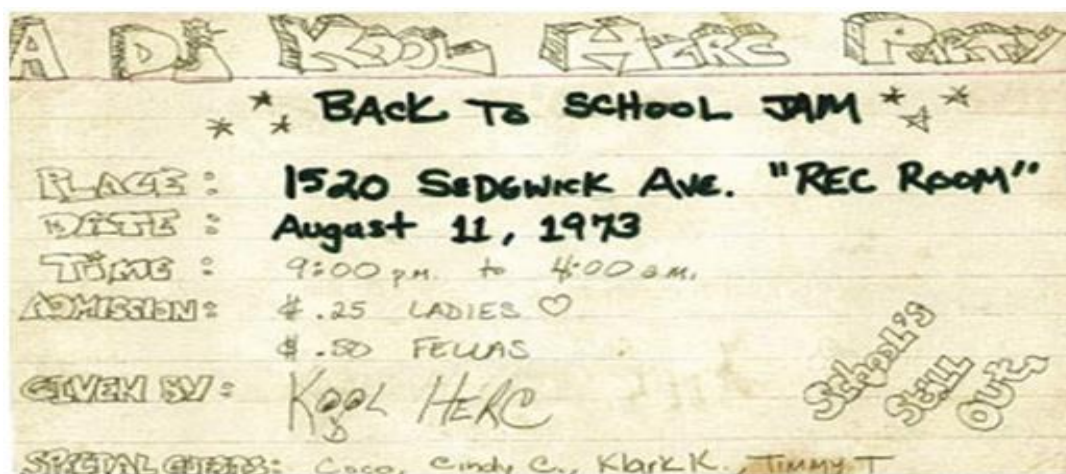 A DJ KOOL HERC PARTY
BACK TO SCHOOL JAM
PLACE: 1520 SEDGWICK AVE. "REC ROOM"
DATE: August 11, 1973
TIME: 9:00 p.m. to 4:00 a.m.
ADMISSION: $.25 LADIES ♡
$.50 FELLAS
SCHOOL'S
STILL
OUT
GIVEN BY: KOOL HERC
SPECIAL GUESTS: Coco, Cindy C., Klark K., TIMMY T